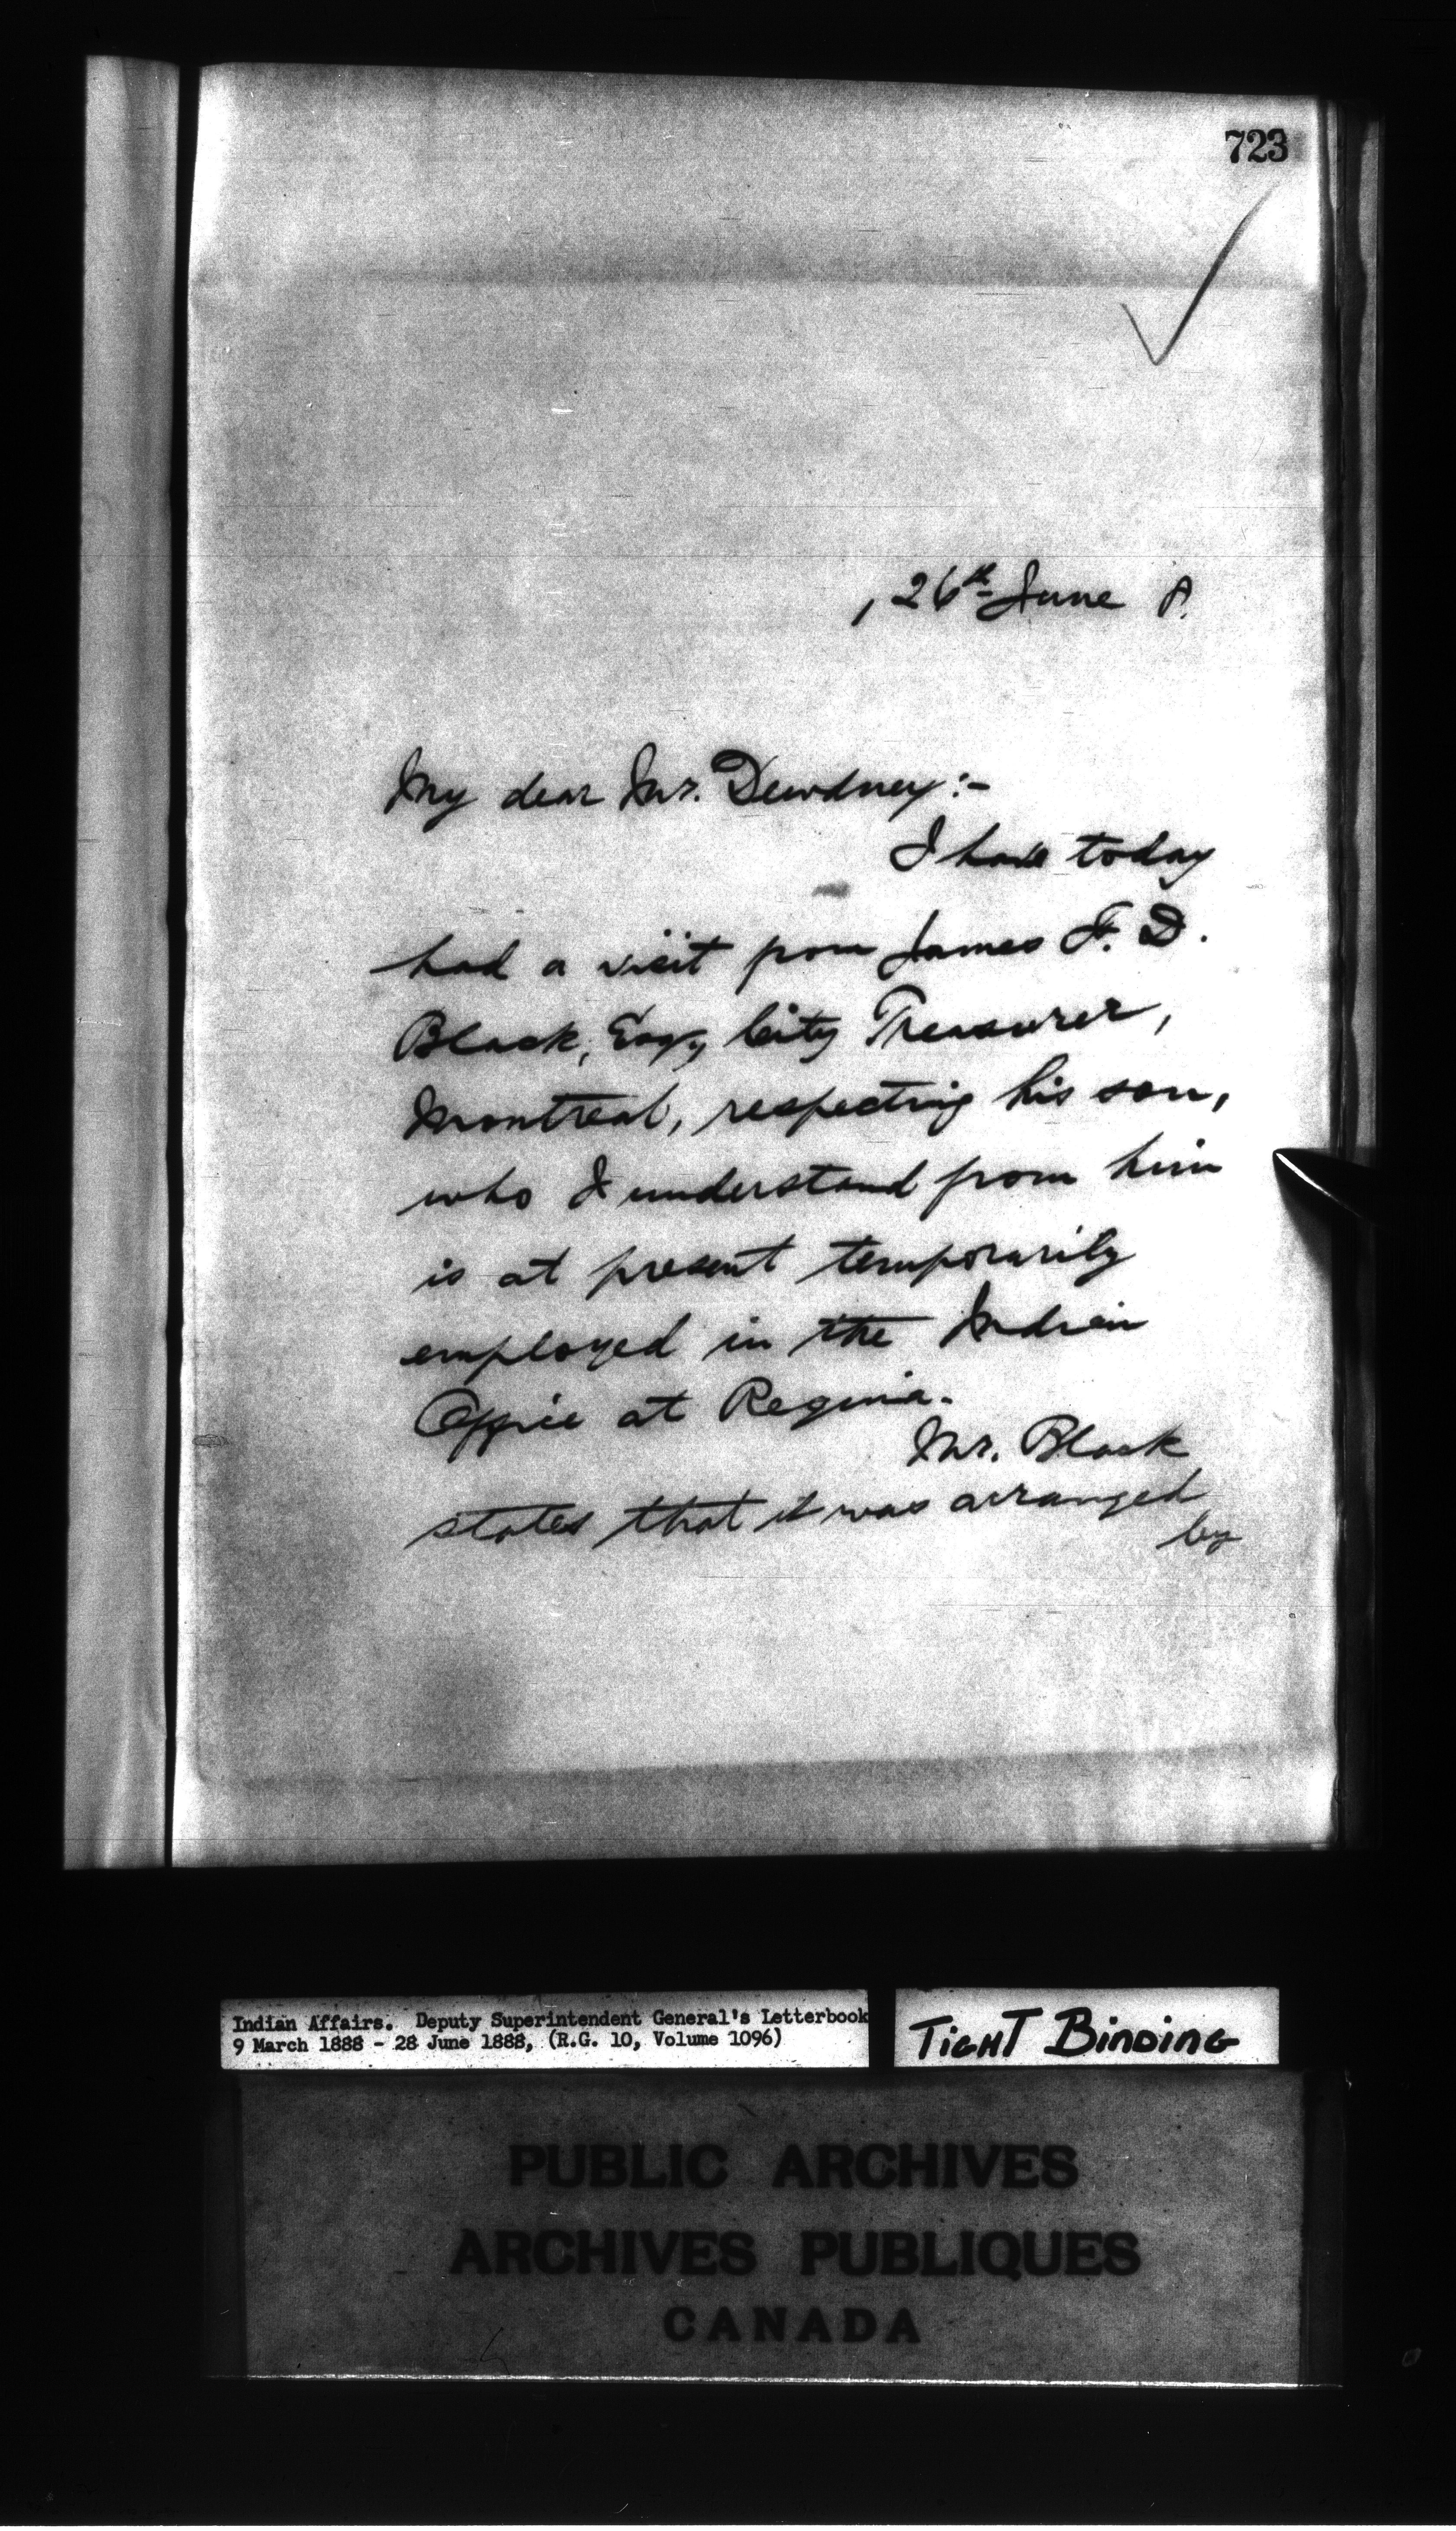 723
, 26th June 8.
My dear Mr. Dewdney:-
I have today
had a visit from James F. D.
Black, Esq, City Treasurer,
Montreal, respecting his son,
who I understand from him
is at present temporarily
employed in the Indian
Office at Regina.
Mr. Black
states that it was arranged
by
Indian Affairs. Deputy Superintendent General's Letterbook
9 March 1888 - 28 June 1888, (R.G. 10, Volume 1096)
TIGHT BINDING
PUBLIC ARCHIVES
ARCHIVES PUBLIQUES
CANADA